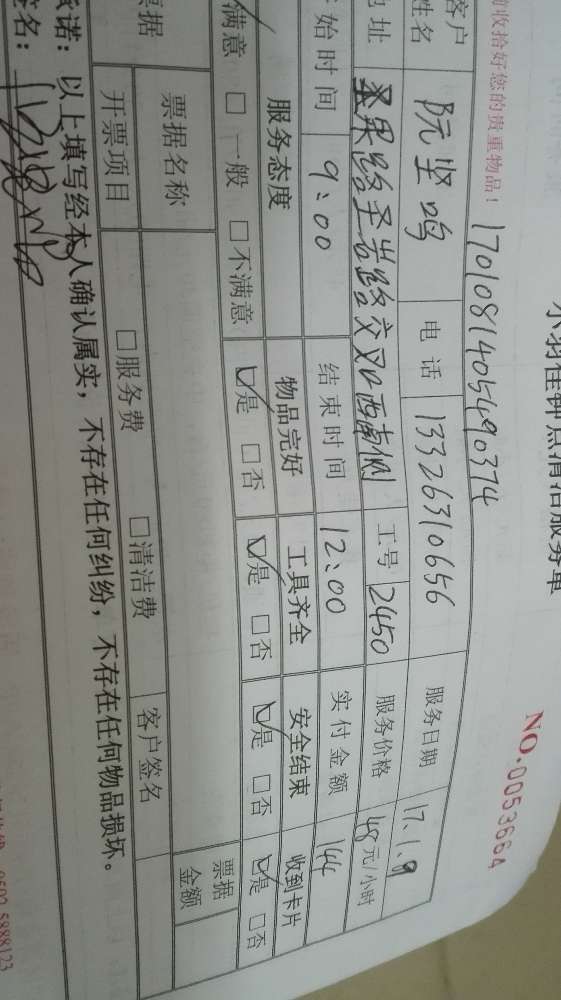 小羽佳钟点清洁服务单
NO.0053664
收拾好您的贵重物品! 1701081405490374
客户姓名 阮坚鸣 电话 13326310656 服务日期 17.1.8
地址 圣果路圣岩路交叉口西南侧 工号 2450 服务价格 48元/小时
始时间 9:00 结束时间 12:00 实付金额 144
服务态度 物品完好 工具齐全 安全结束 收到卡片
满意 □一般 □不满意 ☑是 □否 ☑是 □否 ☑是 □否 ☑是 □否
票据 票据名称 票据金额
开票项目 □服务费 □清洁费 客户签名
承诺:以上填写经本人确认属实,不存在任何纠纷,不存在任何物品损坏。
签名:
5888123